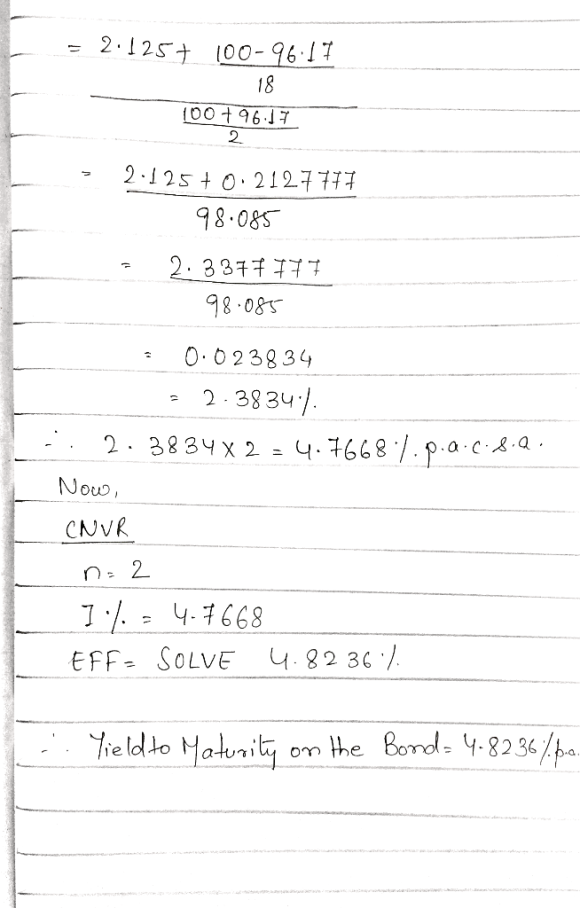 = 2.125 + 100 - 96.17
18
100 + 96.17
2
= 2.125 + 0.2127777
98.085
= 2.3377777
98.085
= 0.023834
= 2.3834%.
∴ 2.3834 x 2 = 4.7668%. p.a.c.s.a.
Now,
CNVR
n = 2
I% = 4.7668
EFF = SOLVE 4.8236%
∴ Yield to Maturity on the Bond = 4.8236%p.a.